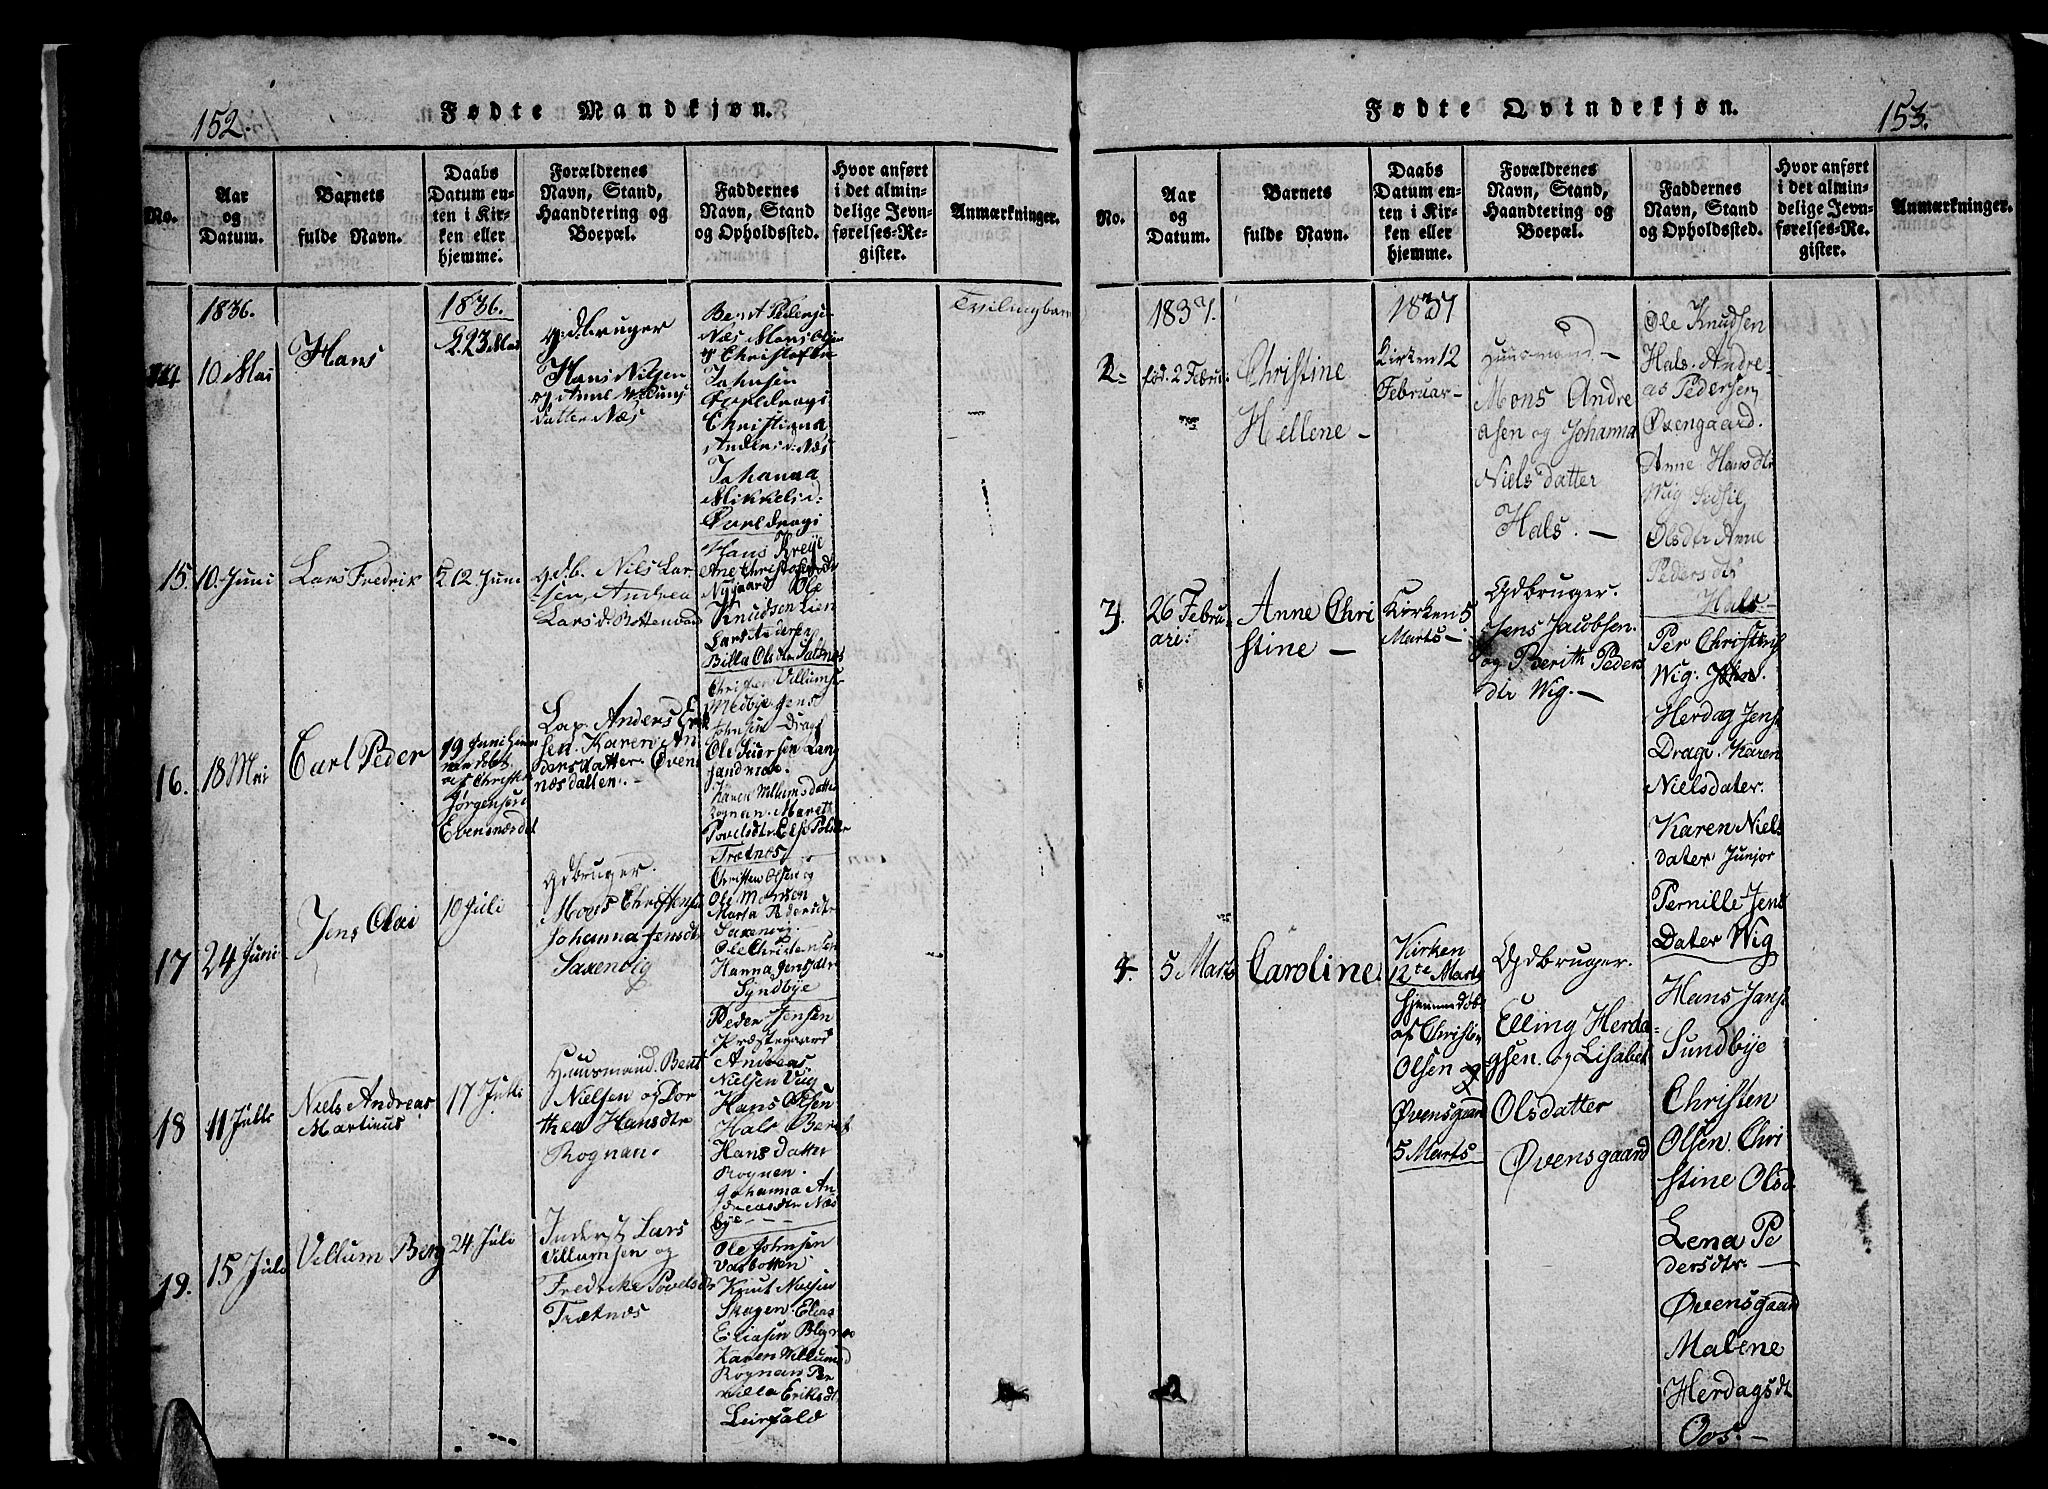 152.
Fødte Mandkjøn.
No.
Aar
og
Datum.
Barnets
fulde Navn.
Daabs
Datum en-
ten i Kir-
ken eller
hjemme.
Forældrenes
Navn, Stand,
Haandtering og
Boepæl.
Faddernes
Navn, Stand
og Opholdssted.
Hvor anført
i det almin-
delige Jevn-
førelses-Re-
gister.
Anmærkninger.
1836.
14
10 Mai
Hans
1836.
23 Mai
gdbruger
Hans Nilsen
datter Næs
Bent Peders
Næs Mons Olsen
Christofher
Johnsen
Christianna
Anders d. Næs
Johanna
Mikkelsd.
Tvilingbarn
15.
10. Juni
Lars Fredrik
12 Juni
gdb. Nils Lar-
sen, Andrea
Larsd. Bottenvand
Hans Kreije
Ane Christophersdtr
Nygaard Ole
Knudsen Lien
Lars Pedersen
Billa Olsdtr Saltnes
16.
18 Mai
Carl Peder
19 Juni hjem
medøbt
af Christen
Jørgensen
Evensmærdet
Lap. Anders Erik
sen. Karen An
dersdatter. Even
næsdallen.
Christen Villumsen
Medbye. Jens
Johnsen Drage
Ole Iversen Lang
sandmoe.
Karen Villumsdatter
Rognan. Mareth
Povelsdtr Else Polsdtr
Trætnes
17
24 Juni
Jens Olai
10 Juli
Gdbruger.
Mons Christensen
Johanna Jensdtr
Saxenvig
Christen Olsen og
Ole Monsen
Maria Pedersdtr
Saxenvig.
Ole Christensen
Hanna Jensdtr
Syndbye
18
11 Julli
Niels Andreas
Martinus
17 Julli
Huusmand. Bent
Nielsen og Dor
thea Hansdtr
Rognan.
Peder Jensen
Præstegaard
Andreas
Nielsen Viig
Hans Olsen
Hals Beret
Hans datter
Rognen.
Johanna An-
dreasdtr Næs
bye
19.
15 Juli
Villum Berg
24 Juli
Inderst Lars
Villumsen og
Fredrike Povelsdtr
Trætnæs
Ole Johnsen
Vasbotten
Knut Nielsen
Skagen Elias
Eliasen
Karen Villumsd
Rognan Per
nilla Eriksdt
Leirfald
153.
Fødte Qvindekjøn.
No.
Aar
og
Datum.
Barnets
fulde Navn.
Daabs
Datum en-
ten i Kir-
ken eller
hjemme.
Forældrenes
Navn, Stand,
Haandtering og
Boepæl.
Faddernes
Navn, Stand
og Opholdssted.
Hvor anført
i det almin-
delige Jevn-
førelses-Re-
gister.
Anmærkninger.
1837.
2-
fød. 2 Febru:
Christine
Hellene -
1837
Kirken 12
Februar -
Huusmand. -
Mons Andre
asen og Johanna
Nielsdatter
Hals. -
Ole Knudsen
Hals. Andre-
as Pedersen
Øvengaard.
Anne Hansdtr
Wiig Sedsil
Olsdtr Anne
Pedersdtr
Hals -
3.
26 Febru
ari:
Anne Chri
stine -
Kirken 5
Marts -
Gdbruger.
Jens Jacobsen.
og Berith Peders
dtr Wig. -
Per Christens
Wig. John.
Herdag Jens
Drage. Karen
Nielsdater.
Karen Niels
dater Junjor
Pernille Jens
Dater Wig
4-
5 Marts
Caroline.
Kirken
12te Marts
hjemmedøbt
af Christen
Olsen
Øvensgaard
5 Marts
Gdbruger.
Elling Herda-
gsen. og Lisabet
Olsdatter
Øvensgaard
Hans Jans
Sundbye
Christen
Olsen. Chri
stine Olsd
Lena Pe
dersdtr. -
Øvensgaard
Malene
Herdagsdt
Oos. -